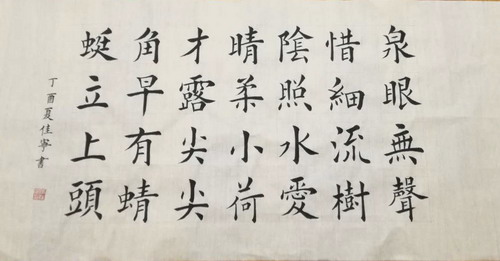 泉眼無聲
惜細流樹
陰照水愛
晴柔小荷
才露尖尖
角早有蜻
蜓立上頭
丁酉夏佳寧書